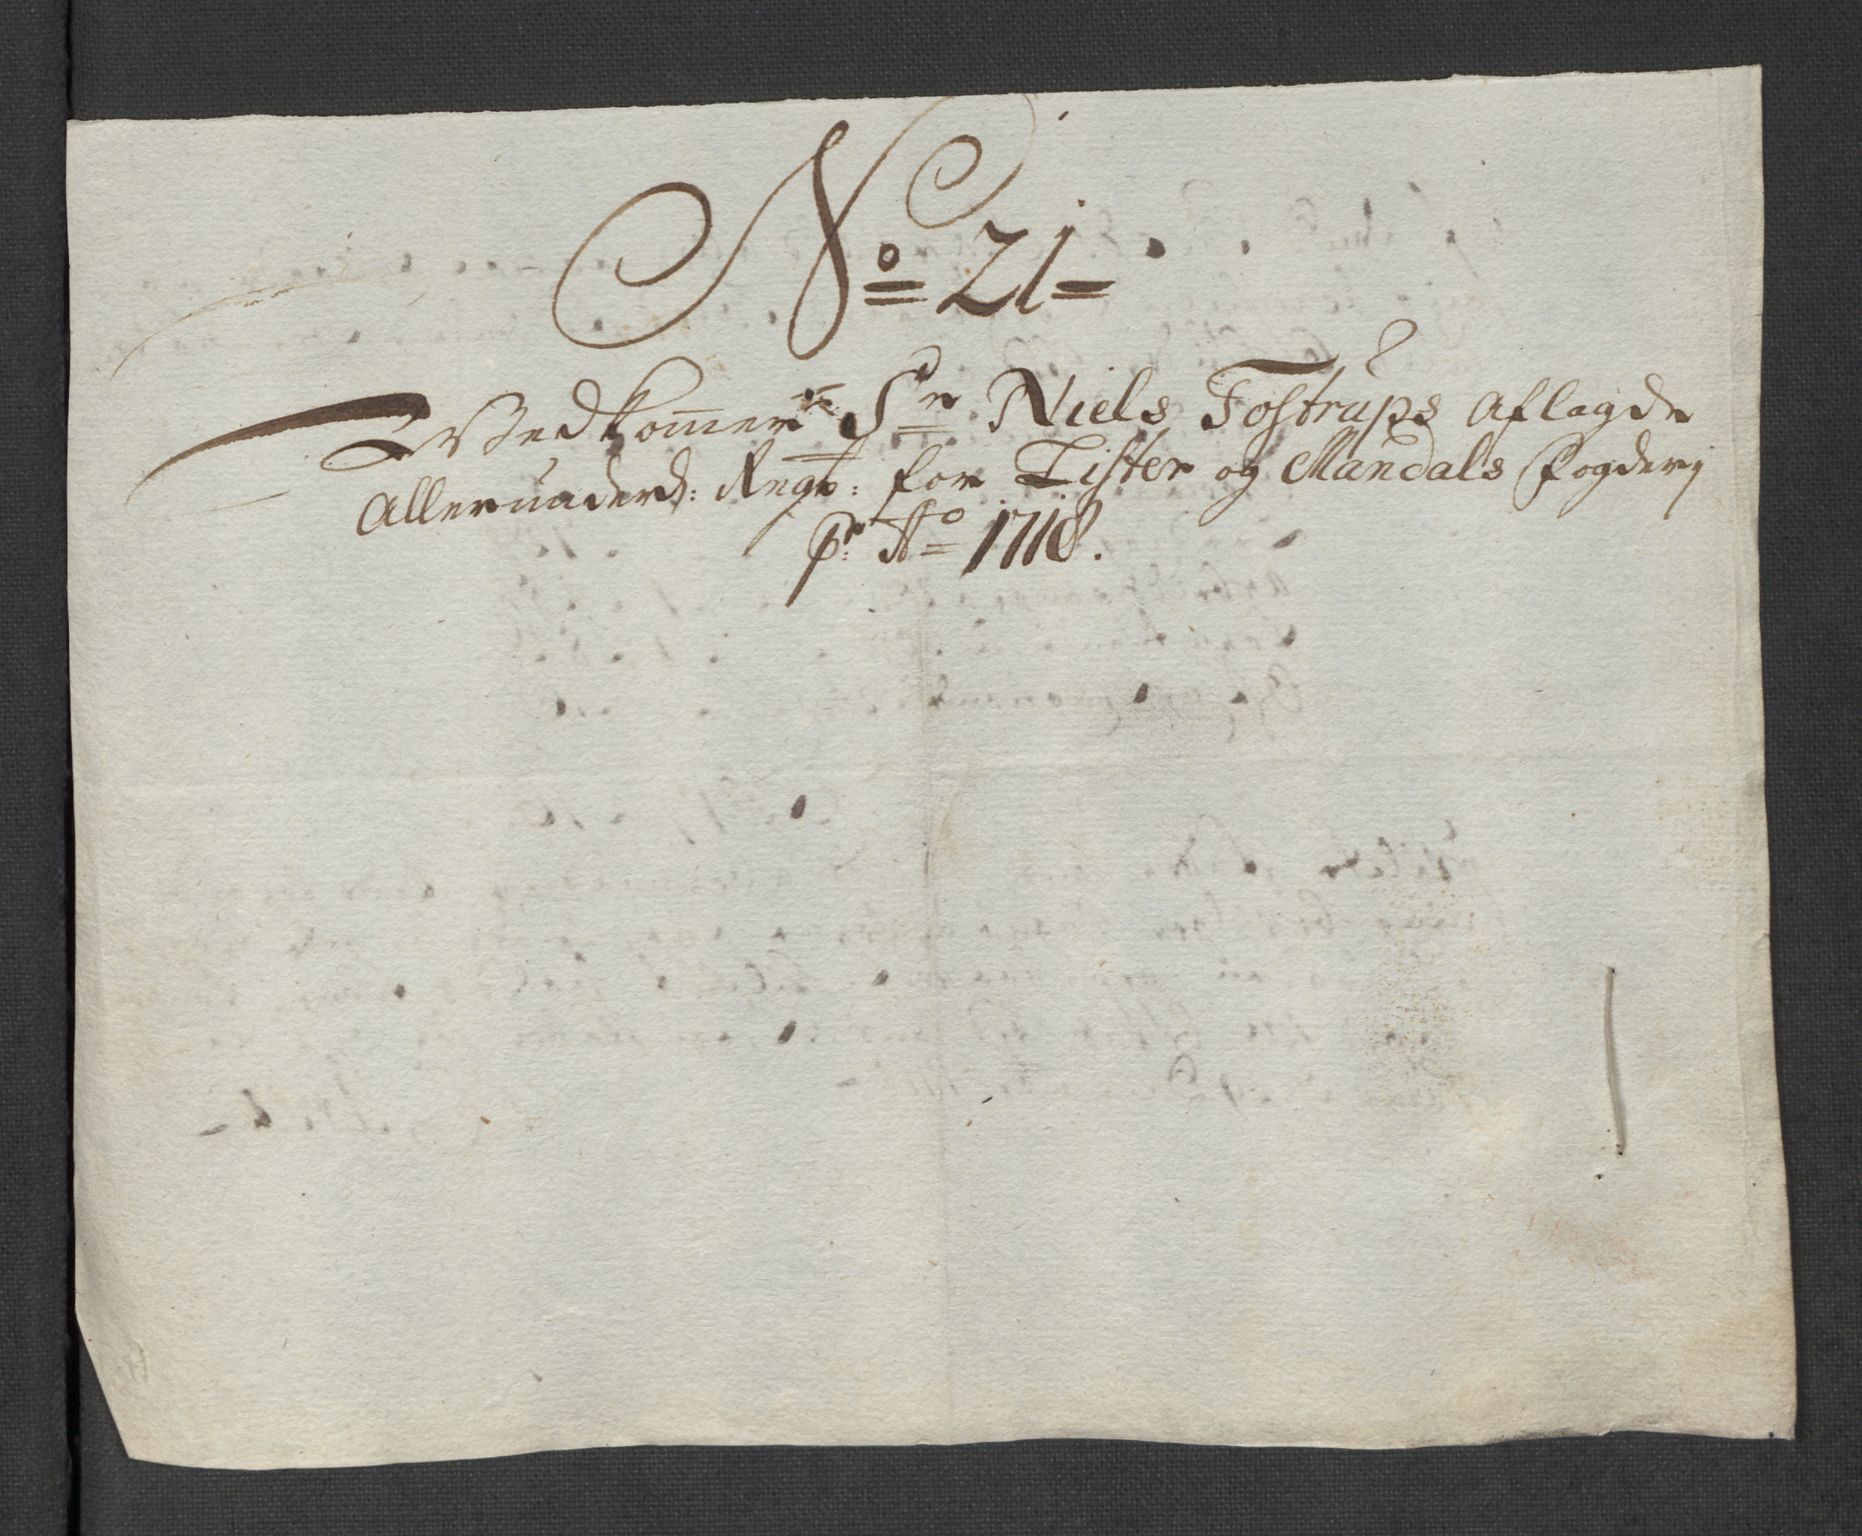 No 21
Vedkommer Sr Niels Fostrups aflagde
Allerunderd: Regsb: for Lister og Mandals Fogderj
pr. Ao 1718.